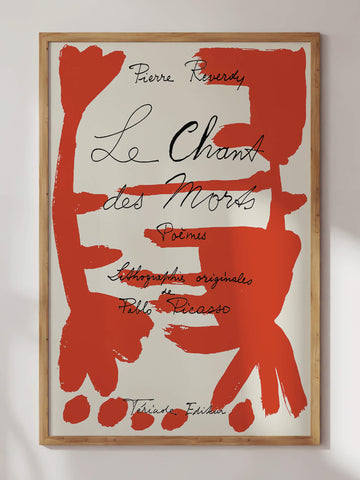 Pierre Reverdy
Le Chant
des Morts
Poèmes
Lithographies originales
de
Pablo Picasso
Tériade Éditeur